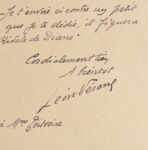 Je t'envoie ci contre un petit
que je te dédie, il figurera
de Diane"
Cordialement
A bientôt
Léon Vérane
à Mme